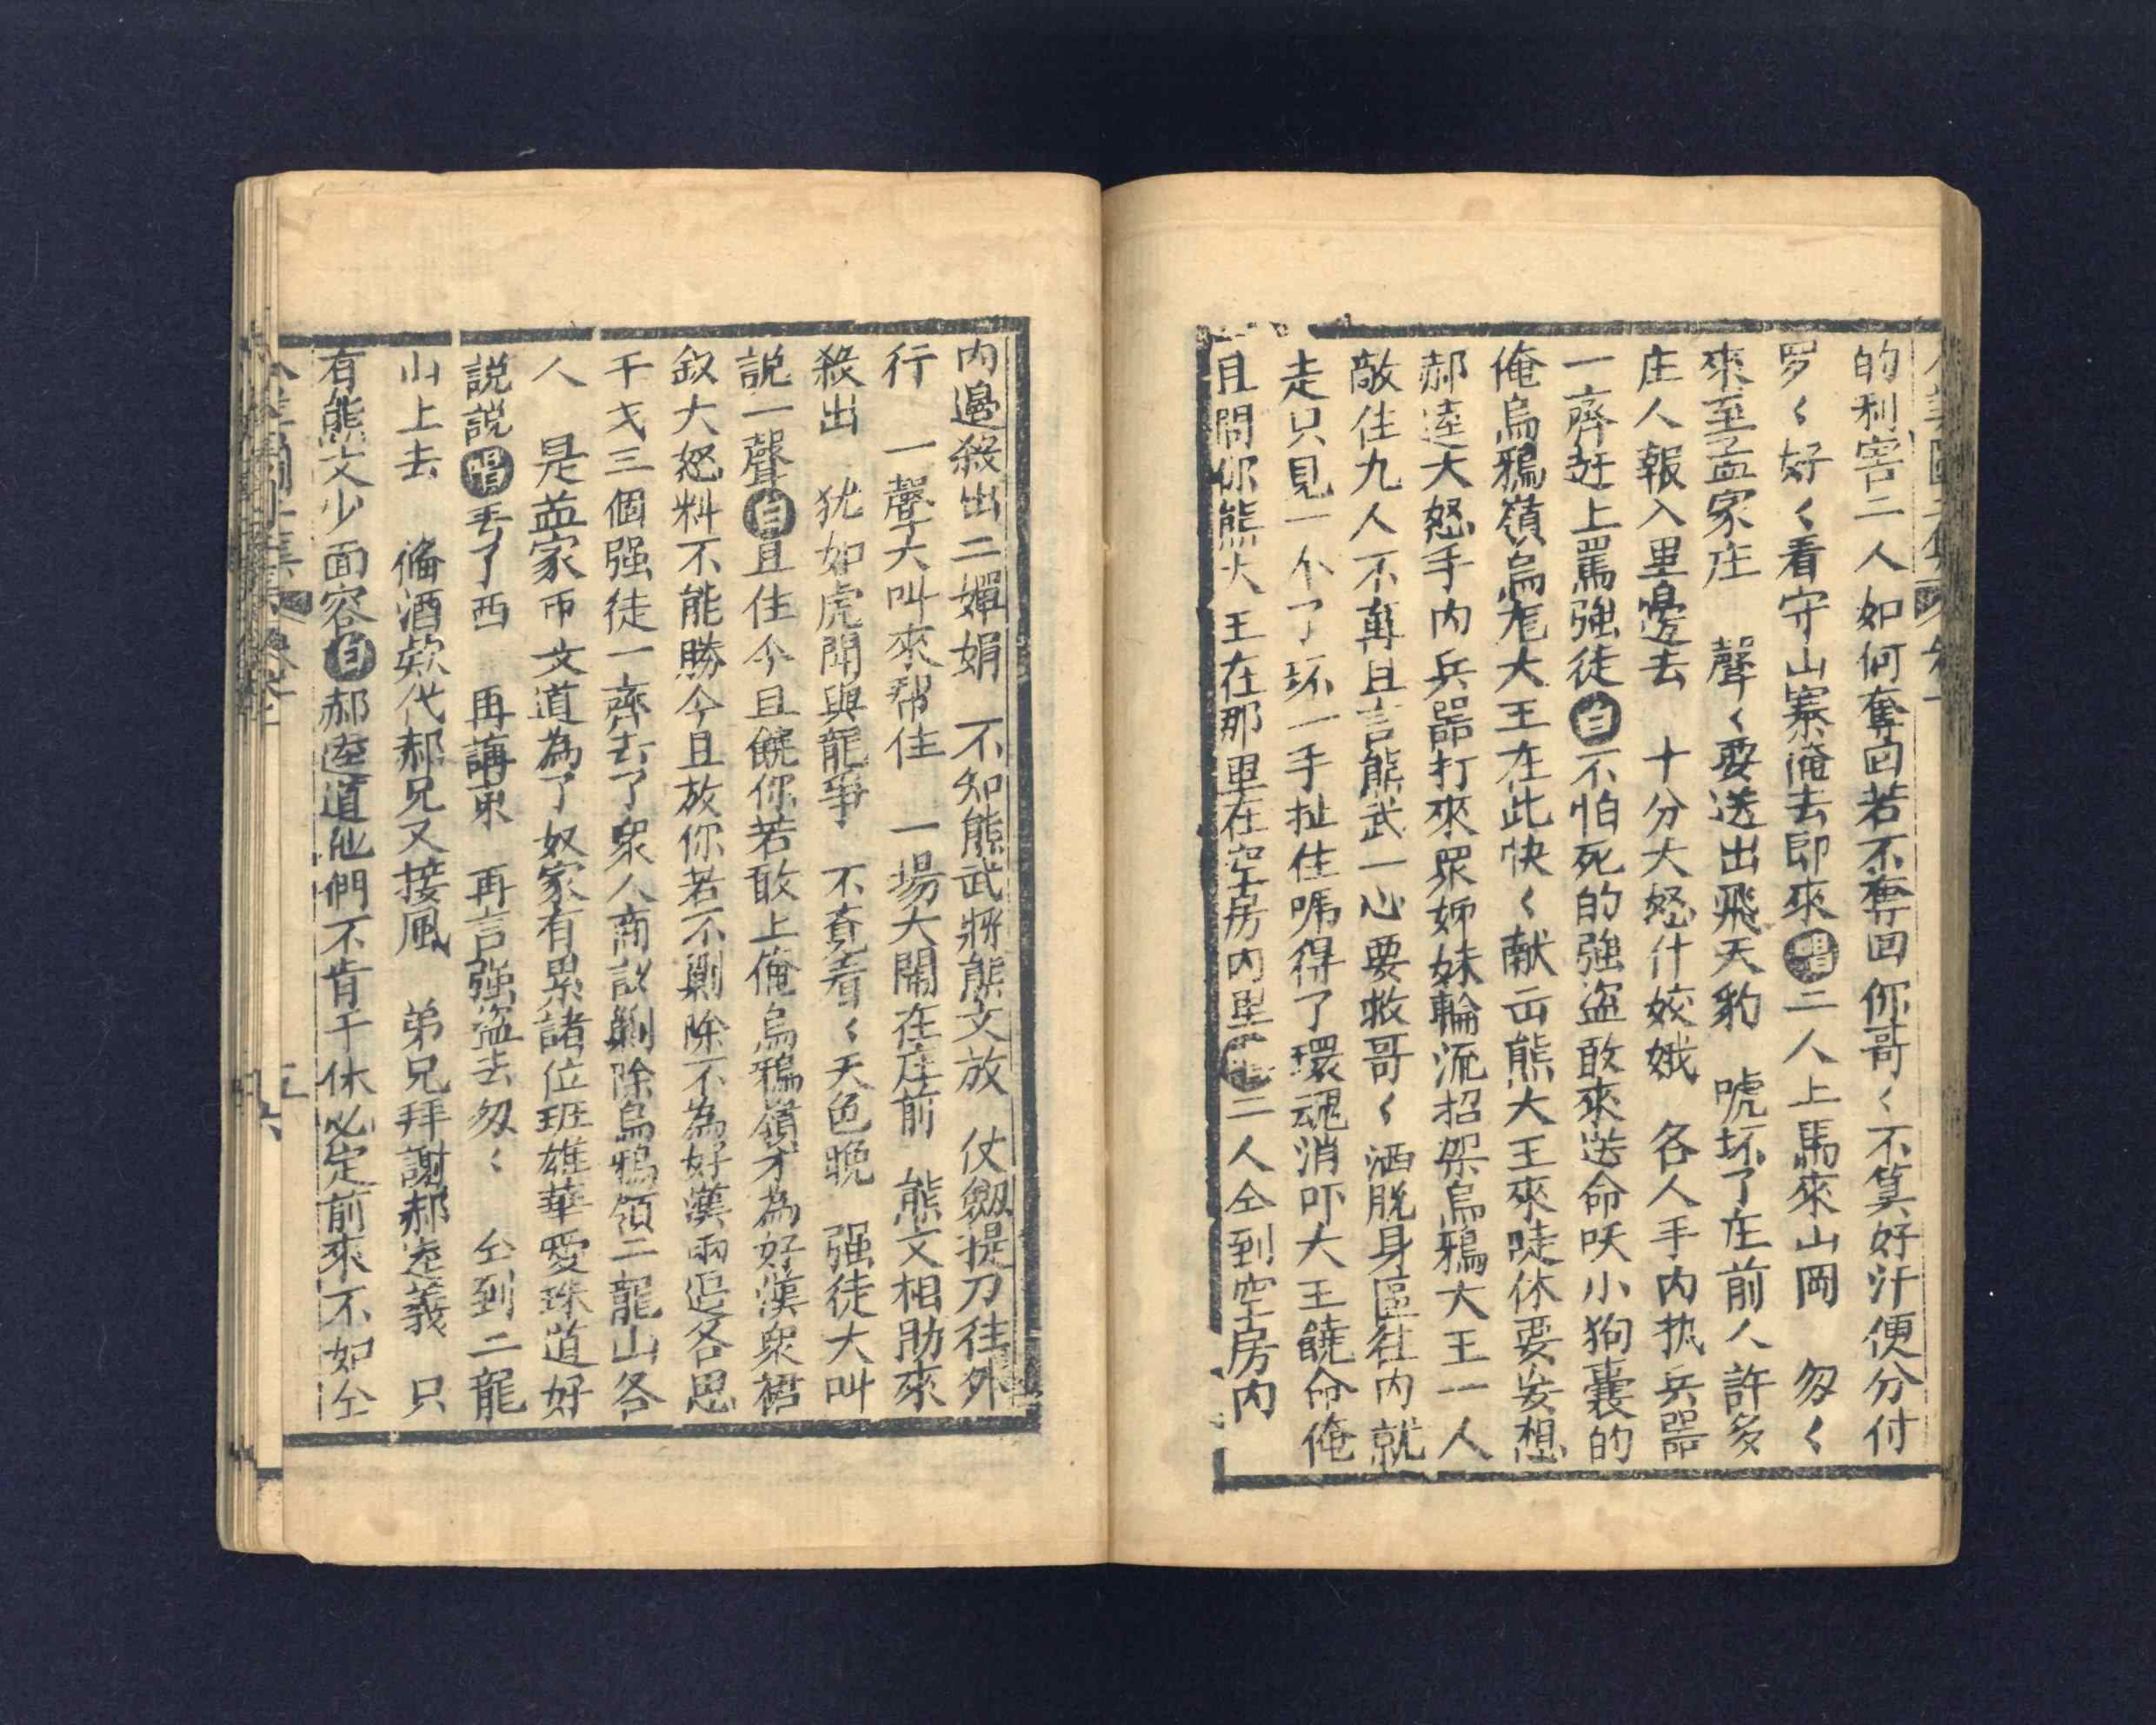 的利害二人如何奪回若不奪回你哥〱不算好汗便分付
罗〱好〱看守山寨俺去即來唱二人上馬來山岡　匆〱
來至孟家庄　聲〱要送出飛天豹　唬坏了庄前人許多
庄人報入里邊去　十分大怒什姣娥　各人手內执兵噐
一齊赶上罵強徒白不怕死的強盗敢來送命呔小狗囊的
俺烏鴉嶺烏尨大王在此快〱献出熊大王來唗休要妄想
郝逵大怒手內兵噐打來眾姊妹輪流招架烏鴉大王一人
敵住九人不萛且言熊武一心要救哥〱洒脱身區往内就
走只見一个了环一手扯住嗎得了環魂消吓大王饒命俺
且問你熊大王在那里在空房内里　二人仝到空房内
内邉殺出二嬋娟　不知熊武將熊文放　仗劔提刀往外
行　一聲大叫來帮住　一場大鬧在庄前　熊文相助來
殺出　犹如虎鬧與龍爭　不覔看〱天色晚　强徒大叫
說一聲白且住今且饒你若敢上俺烏鴉嶺才為好漢眾裙
釵大怒料不能勝今且放你若不剿除不為好漢兩邉各思
干戈三個强徒一齊去了眾人商議剿除烏鴉領二龍山各
人　是孟家帀文道為了奴家有累諸位班雄華愛珠道好
說說唱丟了西　再講東　再言强盗去匆〱　仝到二龍
山上去　俻酒欵代郝兄又接風　弟兄拜謝郝逵義　只
有熊文少面容白郝逵道他們不肯干休必定前來不如仝